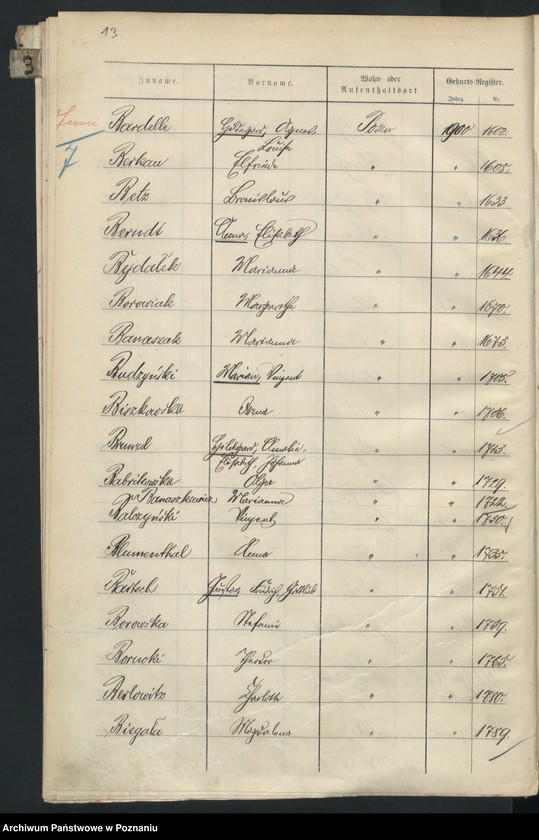 13
3
Zuname. Vorname. Wohn- oder Aufenthaltsort Geburts-Register.
Jahrg. Nr.
Juni
7
Bardelle Hildegard, Agnes Posen 1900 1602.
Louise
Berkau Elfriede " " 1608.
Betz Bronislaus " " 1633
Berndt Anna, Elisabeth " " 1636
Bydałek Marianna " " 1644.
Borowiak Margarethe " " 1670.
Banaszak Marianna " " 1673.
Budzyński Marian, Vinzent " " 1705.
Biszkowska Anna " " 1706.
Brunzel Hildegard, Amalie, " " 1713.
Elisabeth, Johanna
Babrilowska Olga " " 1719.
Banaszkiewicz Marianna " " 1722.
Balczyński Vinzent " " 1730.
Blumenthal Anna " " 1735.
Bartsch Gustav Friedrich Gottlieb " " 1751.
Borowska Stefanie " " 1759.
Bornicki Theodor " " 1765.
Berlowitz Charlotte " " 1780.
Biegała Magdalena " " 1789.
Archiwum Państwowe w Poznaniu